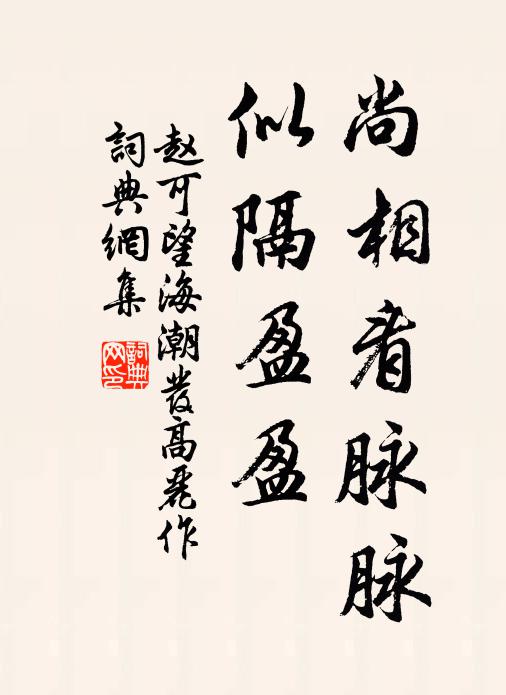 尚相看脉脉
似隔盈盈
赵可望海潮发高丽作
詞典網集
詞典
网印